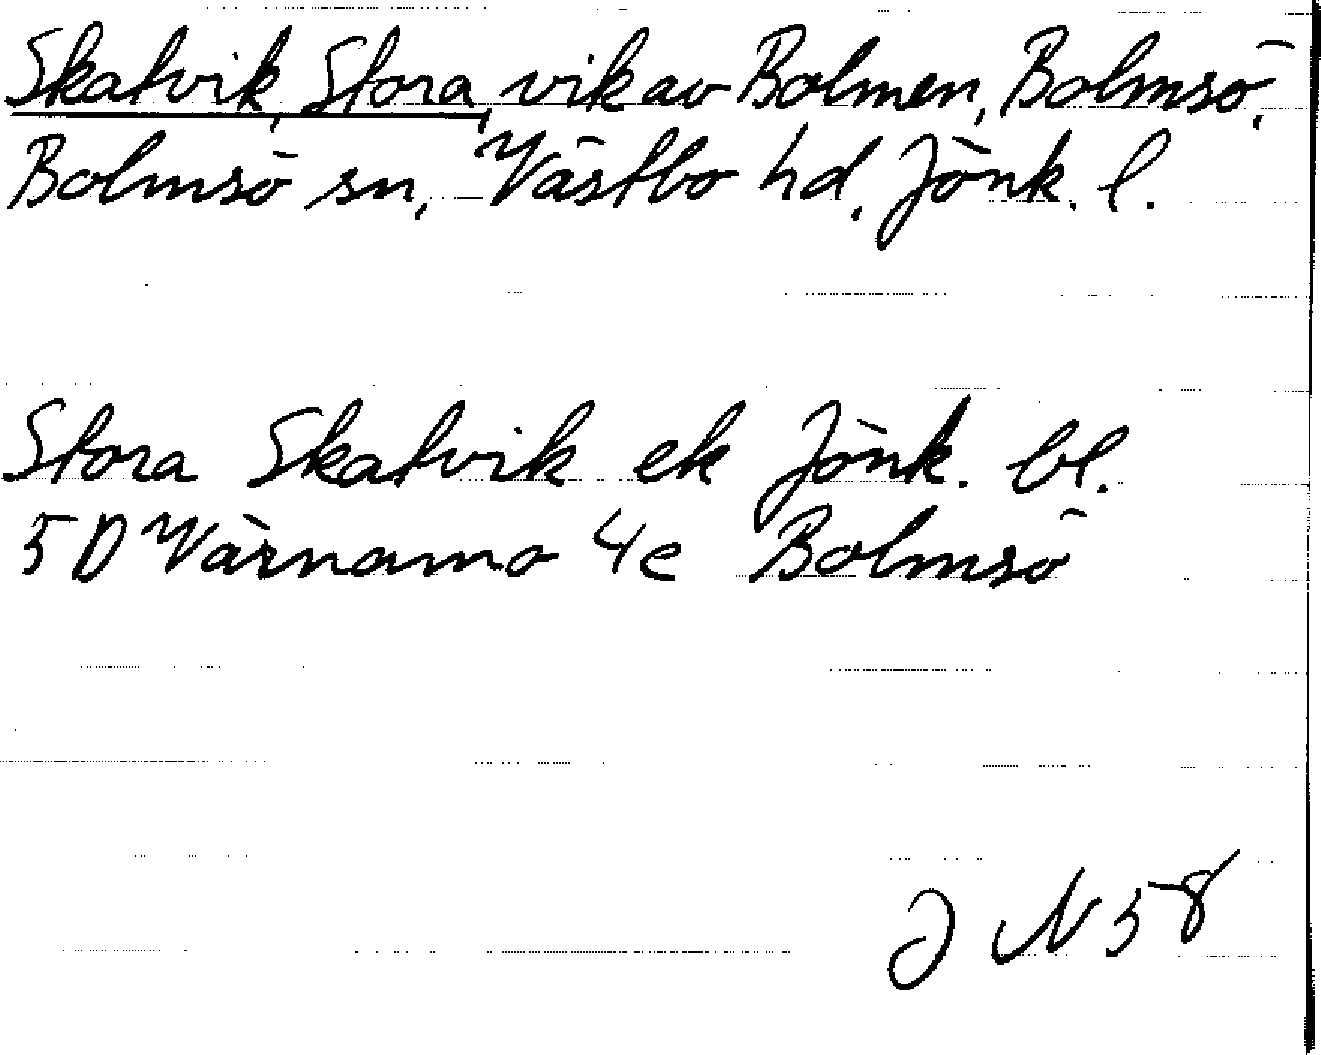 Skatvik, Stora, vik av Bolmen, Bolmsö,
Bolmsö sn, Västbo hd, Jönk. l.
Stora Skatvik ek Jönk. bl.
5D Värnamo 4e Bolmsö
J N 58